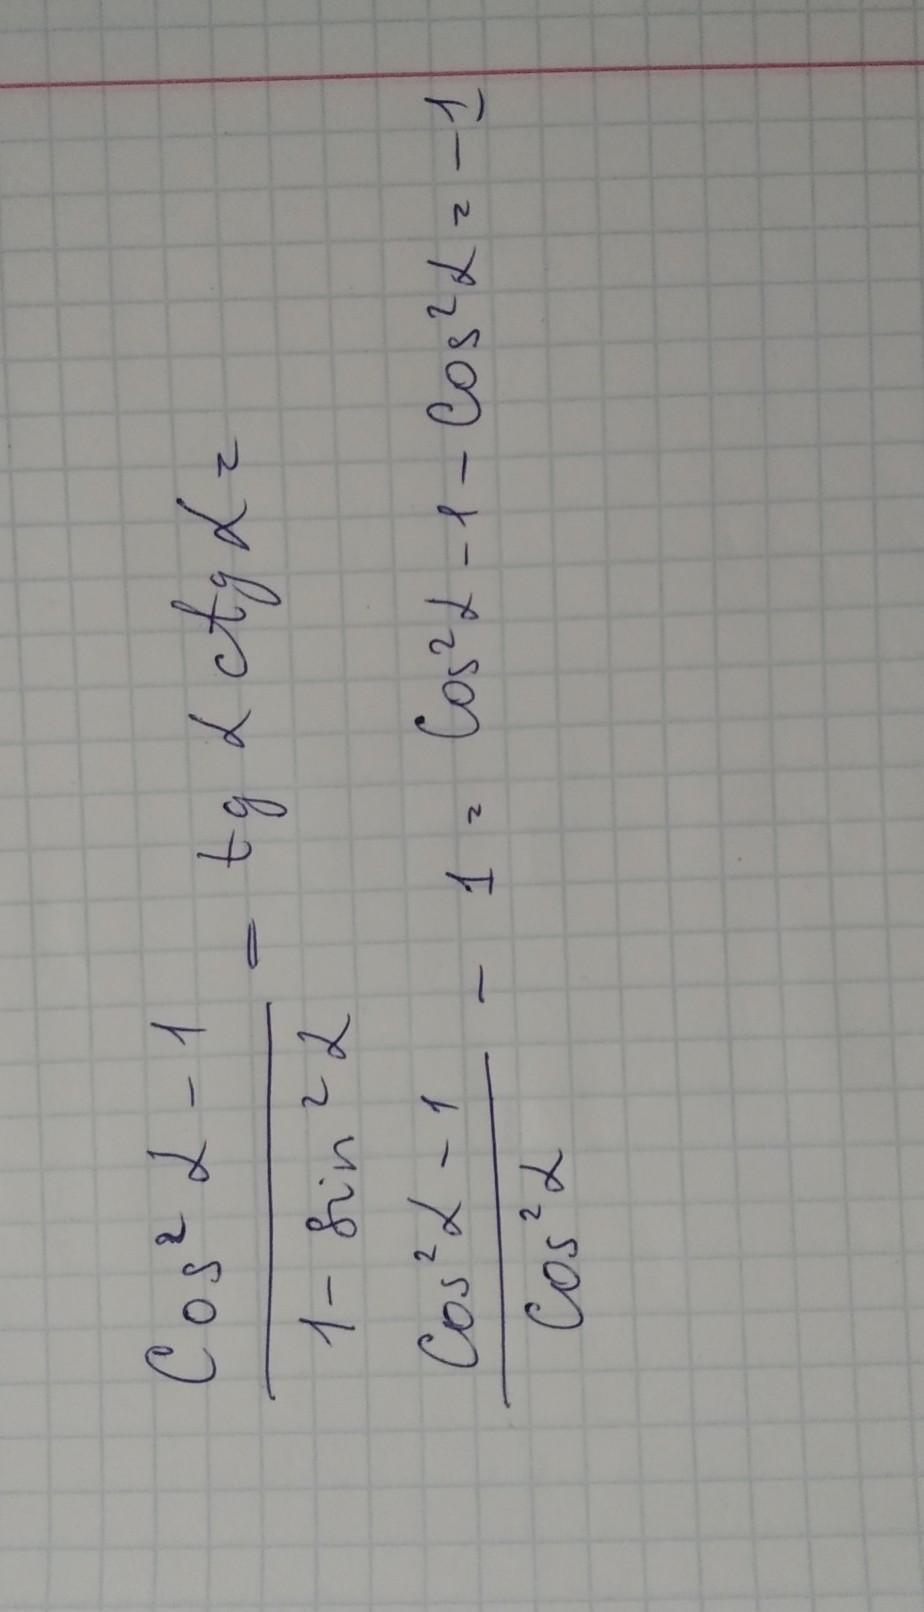 cos² α - 1
1 - sin² α
- tg α ctg α =
cos² α - 1
cos² α
- 1 = cos² α - 1 - cos² α = - 1